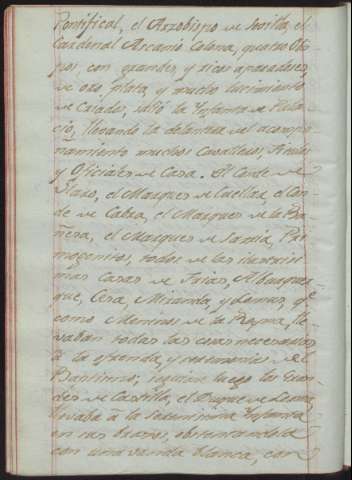 Pontifical, el Arzobispo de Sevilla, el
Cardenal Ascanio Colona, quatro Obis-
pos, con grandes, y ricos aparadores,
de oro, plata, y mucho lucimiento
de Criados, salió la Infanta de Pala-
cio, llevando la delantera del acompa-
ñamiento muchos Cavalleros, Titulos
y Oficiales de Casa. El Conde de
Haro, el Marques de Cuellar, el Con-
de de Cabra, el Marques de la Ba-
ñeza, el Marques de Sarria, Pri-
mogenitos, todos de las
Casas de Frias, Alburquer-
que, Cesa, Miranda, y Lemus, qe
como Meninos de la Reyna, lle-
vaban todas las cosas necesarias
à la ofrenda, y ceremonia del
Bautismo; seguian luego los Gran-
des de Castilla, el Duque de Lerma,
llevaba à la Serenisima Infanta
en sus brazos,
con una vanda blanca, con